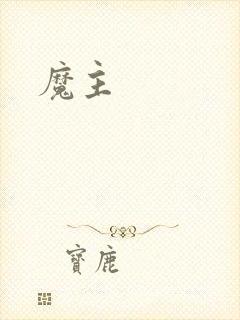 魔主
寶鹿